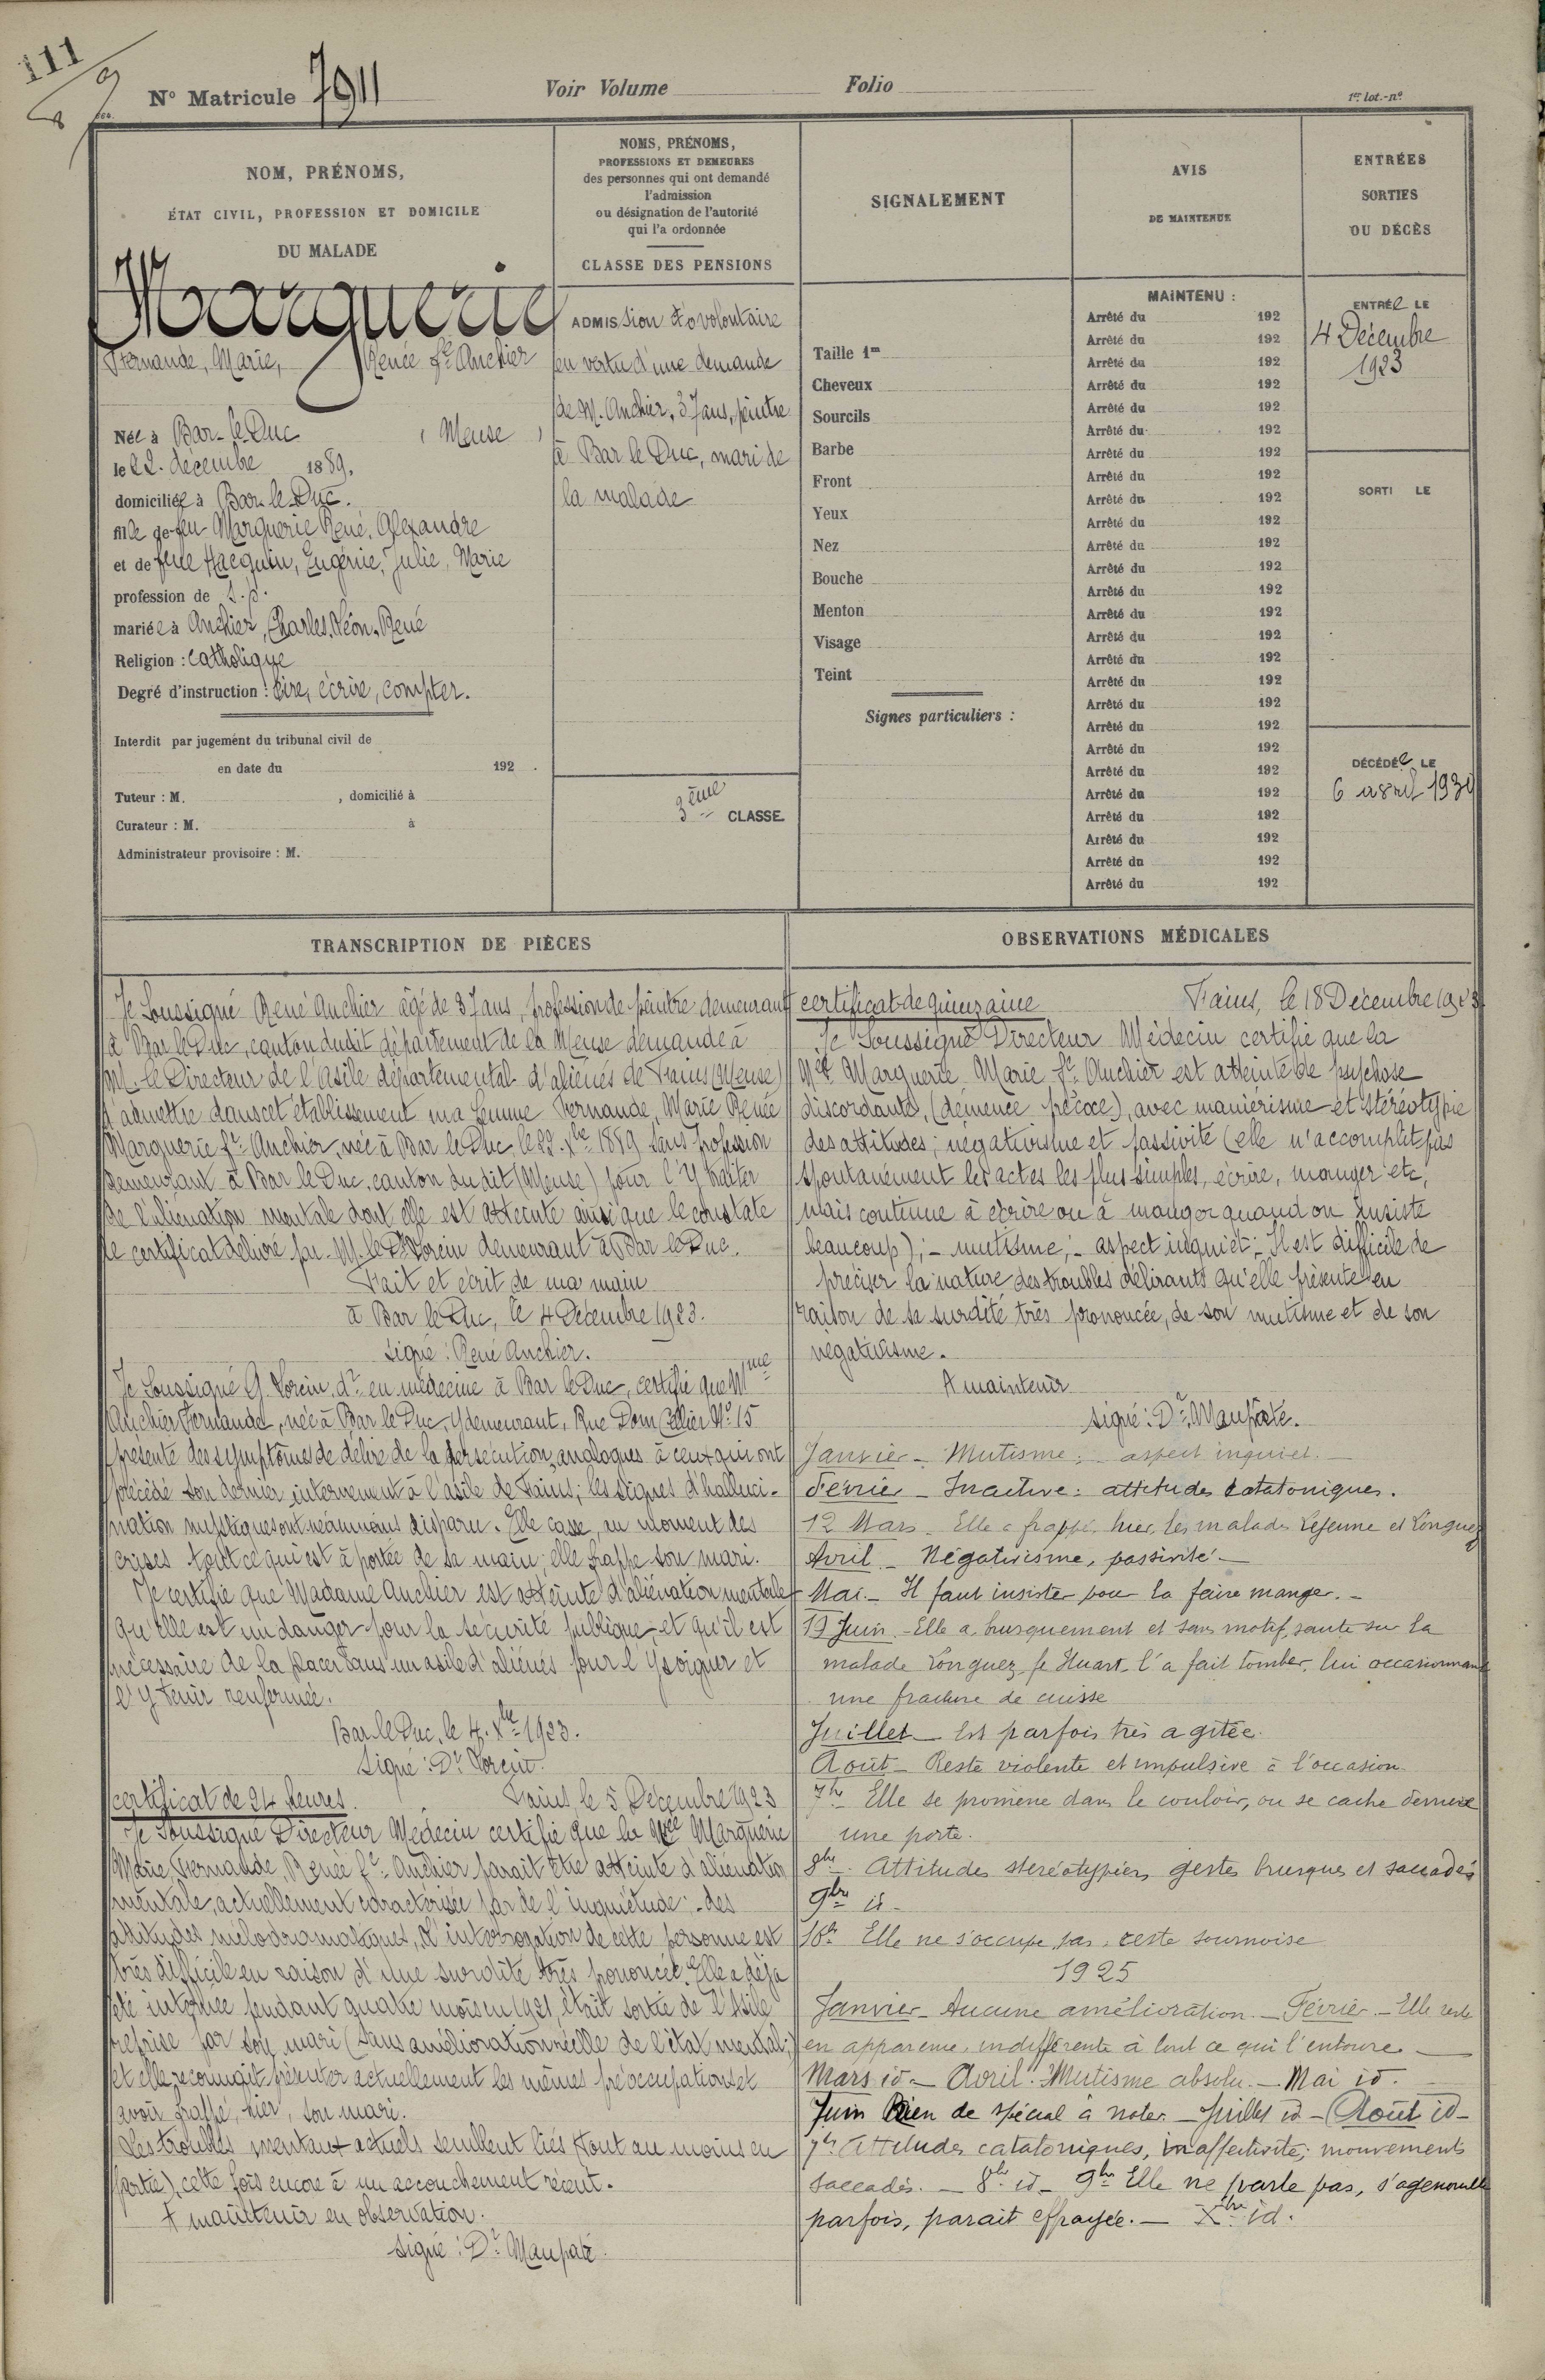 111
N° Matricule 7911
Voir Volume
Folio
1er lot.-n°
NOM, PRÉNOMS,
ÉTAT CIVIL, PROFESSION ET DOMICILE
DU MALADE
Marguerie
Fernande, Marie, Renée fe Anchier
Née à Bar-le-Duc (Meuse)
le 22 décembre 1889.
domiciliée à Bar-le-Duc.
fille de feu Marguerie René, Alexandre
et de feue Hacquin, Eugénie, Julie, Marie
profession de s.p.
mariée à Anchier, Charles, Léon, René
Religion : Catholique
Degré d'instruction : lire, écrire, compter.
Interdit par jugement du tribunal civil de
en date du 192 .
Tuteur : M. , domicilié à
Curateur : M. à
Administrateur provisoire : M.
NOMS, PRÉNOMS,
PROFESSIONS ET DEMEURES
des personnes qui ont demandé
l'admission
ou désignation de l'autorité
qui l'a ordonnée
CLASSE DES PENSIONS
ADMISsion volontaire
en vertu d'une demande
de M. Anchier, 37 ans, peintre
à Bar le Duc, mari de
la malade
3ème CLASSE
SIGNALEMENT
Taille 1m
Cheveux
Sourcils
Barbe
Front
Yeux
Nez
Bouche
Menton
Visage
Teint
Signes particuliers :
AVIS
DE MAINTENUE
MAINTENU :
Arrêté du 192
Arrêté du 192
Arrêté du 192
Arrêté du 192
Arrêté du 192
Arrêté du 192
Arrêté du 192
Arrêté du 192
Arrêté du 192
Arrêté du 192
Arrêté du 192
Arrêté du 192
Arrêté du 192
Arrêté du 192
Arrêté du 192
Arrêté du 192
Arrêté du 192
Arrêté du 192
Arrêté du 192
Arrêté du 192
Arrêté du 192
Arrêté du 192
Arrêté du 192
Arrêté du 192
Arrêté du 192
Arrêté du 192
ENTRÉES
SORTIES
OU DÉCÈS
ENTRÉe LE
4 Décembre
1923
SORTI LE
DÉCÉDÉe LE
6 avril
TRANSCRIPTION DE PIÈCES
Je Soussigné René Anchier âgé de 37 ans, profession de peintre demeurant
à Bar le Duc, canton dudit département de la Meuse demande à
M. le Directeur de l'Asile départemental d'aliénés de Fains (Meuse)
d'admettre dans cet établissement ma femme Fernande, Marie Renée
Marguerie fe Anchier, née à Bar le Duc, le 22 Xbre 1889 sans profession
demeurant à Bar le Duc, canton dudit (Meuse) pour l'y traiter
de l'aliénation mentale dont elle est atteinte ainsi que le constate
le certificat délivré par M. le Dr Lorein demeurant à Bar le Duc.
Fait et écrit de ma main
à Bar le Duc, le 4 Décembre 1923.
signé : René Anchier.
Je Soussigné G. Lorein, dr en médecine à Bar le Duc, certifie que Mme
Anchier Fernande, née à Bar le Duc, y demeurant, Rue Dom Cellier N° 15
présente des symptômes de délire de la persécution, analogues à ceux qui ont
précédé son dernier internement à l'asile de Fains ; les signes d'halluci-
nation mystiques ont néanmoins disparu. Elle casse, au moment des
crises tout ce qui est à portée de sa main ; elle frappe son mari.
Je certifie que Madame Anchier est atteinte d'aliénation mentale
qu'elle est un danger pour la sécurité publique, et qu'il est
nécessaire de la placer dans un asile d'aliénés pour l'y soigner et
l'y tenir renfermée.
Bar le Duc, le 4 Xbre 1923.
Signé : Dr Lorein.
certificat de 24 heures. Fains, le 5 Décembre 1923
Je Soussigné Directeur Médecin certifie que la Née Marguerie
Marie, Fernande, Renée fe Anchier parait être atteinte d'aliénation
mentale, actuellement caractérisée par de l'inquiétude ; des
attitudes mélodramatiques, l'interrogation de cette personne est
très difficile en raison d'une surdité très prononcée. Elle a déjà
été internée pendant quatre mois en 1921, était sortie de l'Asile
reprise par son mari (sans amélioration réelle de l'état mental ;)
et elle reconnait présenter actuellement les mêmes préoccupations et
avoir frappé, hier, son mari.
Les troubles mentaux actuels semblent liés (tout au moins en
partie), cette fois encore à un accouchement récent.
A maintenir en observation.
signé : Dr Maupaté.
OBSERVATIONS MÉDICALES
certificat de quinzaine Fains, le 18 Décembre 1923
Je Soussigné Directeur Médecin certifie que la
Née Marguerie Marie fe Anchier est atteinte de psychose
discordante, (démence précoce), avec maniérisme et stéréotypie
des attitudes ; négativisme et passivité (elle n'accomplit pas
spontanément les actes les plus simples, écrire, manger etc,
mais continue à écrire ou à manger quand on insiste
beaucoup) ; - mutisme ; - aspect inquiet ; - Il est difficile de
préciser la nature des troubles délirants qu'elle présente en
raison de sa surdité très prononcée, de son mutisme et de son
négativisme.
A maintenir
signé : Dr Maupaté.
Janvier - Mutisme ; - aspect inquiet. -
Février - Inactive : attitudes catatoniques.
12 Mars. Elle a frappé, hier, les malades Lejeune et Longuez
Avril - Négativisme, passivité -
Mai - Il faut insister pour la faire manger. -
19 Juin - Elle a brusquement et sans motif, sauté sur la
malade Longuez fe Huart - l'a fait tomber, lui occasionnant
une fracture de cuisse
Juillet - Est parfois très agitée.
Août - Reste violente et impulsive à l'occasion
7bre - Elle se promène dans le couloir, ou se cache derrière
une porte.
8bre - Attitudes stéréotypées, gestes brusques et saccadés
9bre id -
10bre Elle ne s'occupe pas ; reste sournoise
1925
Janvier - Aucune amélioration. - Février. - Elle reste
en apparence, indifférente à tout ce qui l'entoure. -
Mars id - Avril. Mutisme absolu. - Mai id.
Juin Rien de spécial à noter - Juillet id - Août id -
7bre Attitudes catatoniques, inaffectivité ; mouvements
saccadés. - 8bre id - 9bre Elle ne parle pas, s'agenouille
parfois, parait effrayée. - Xbre id.